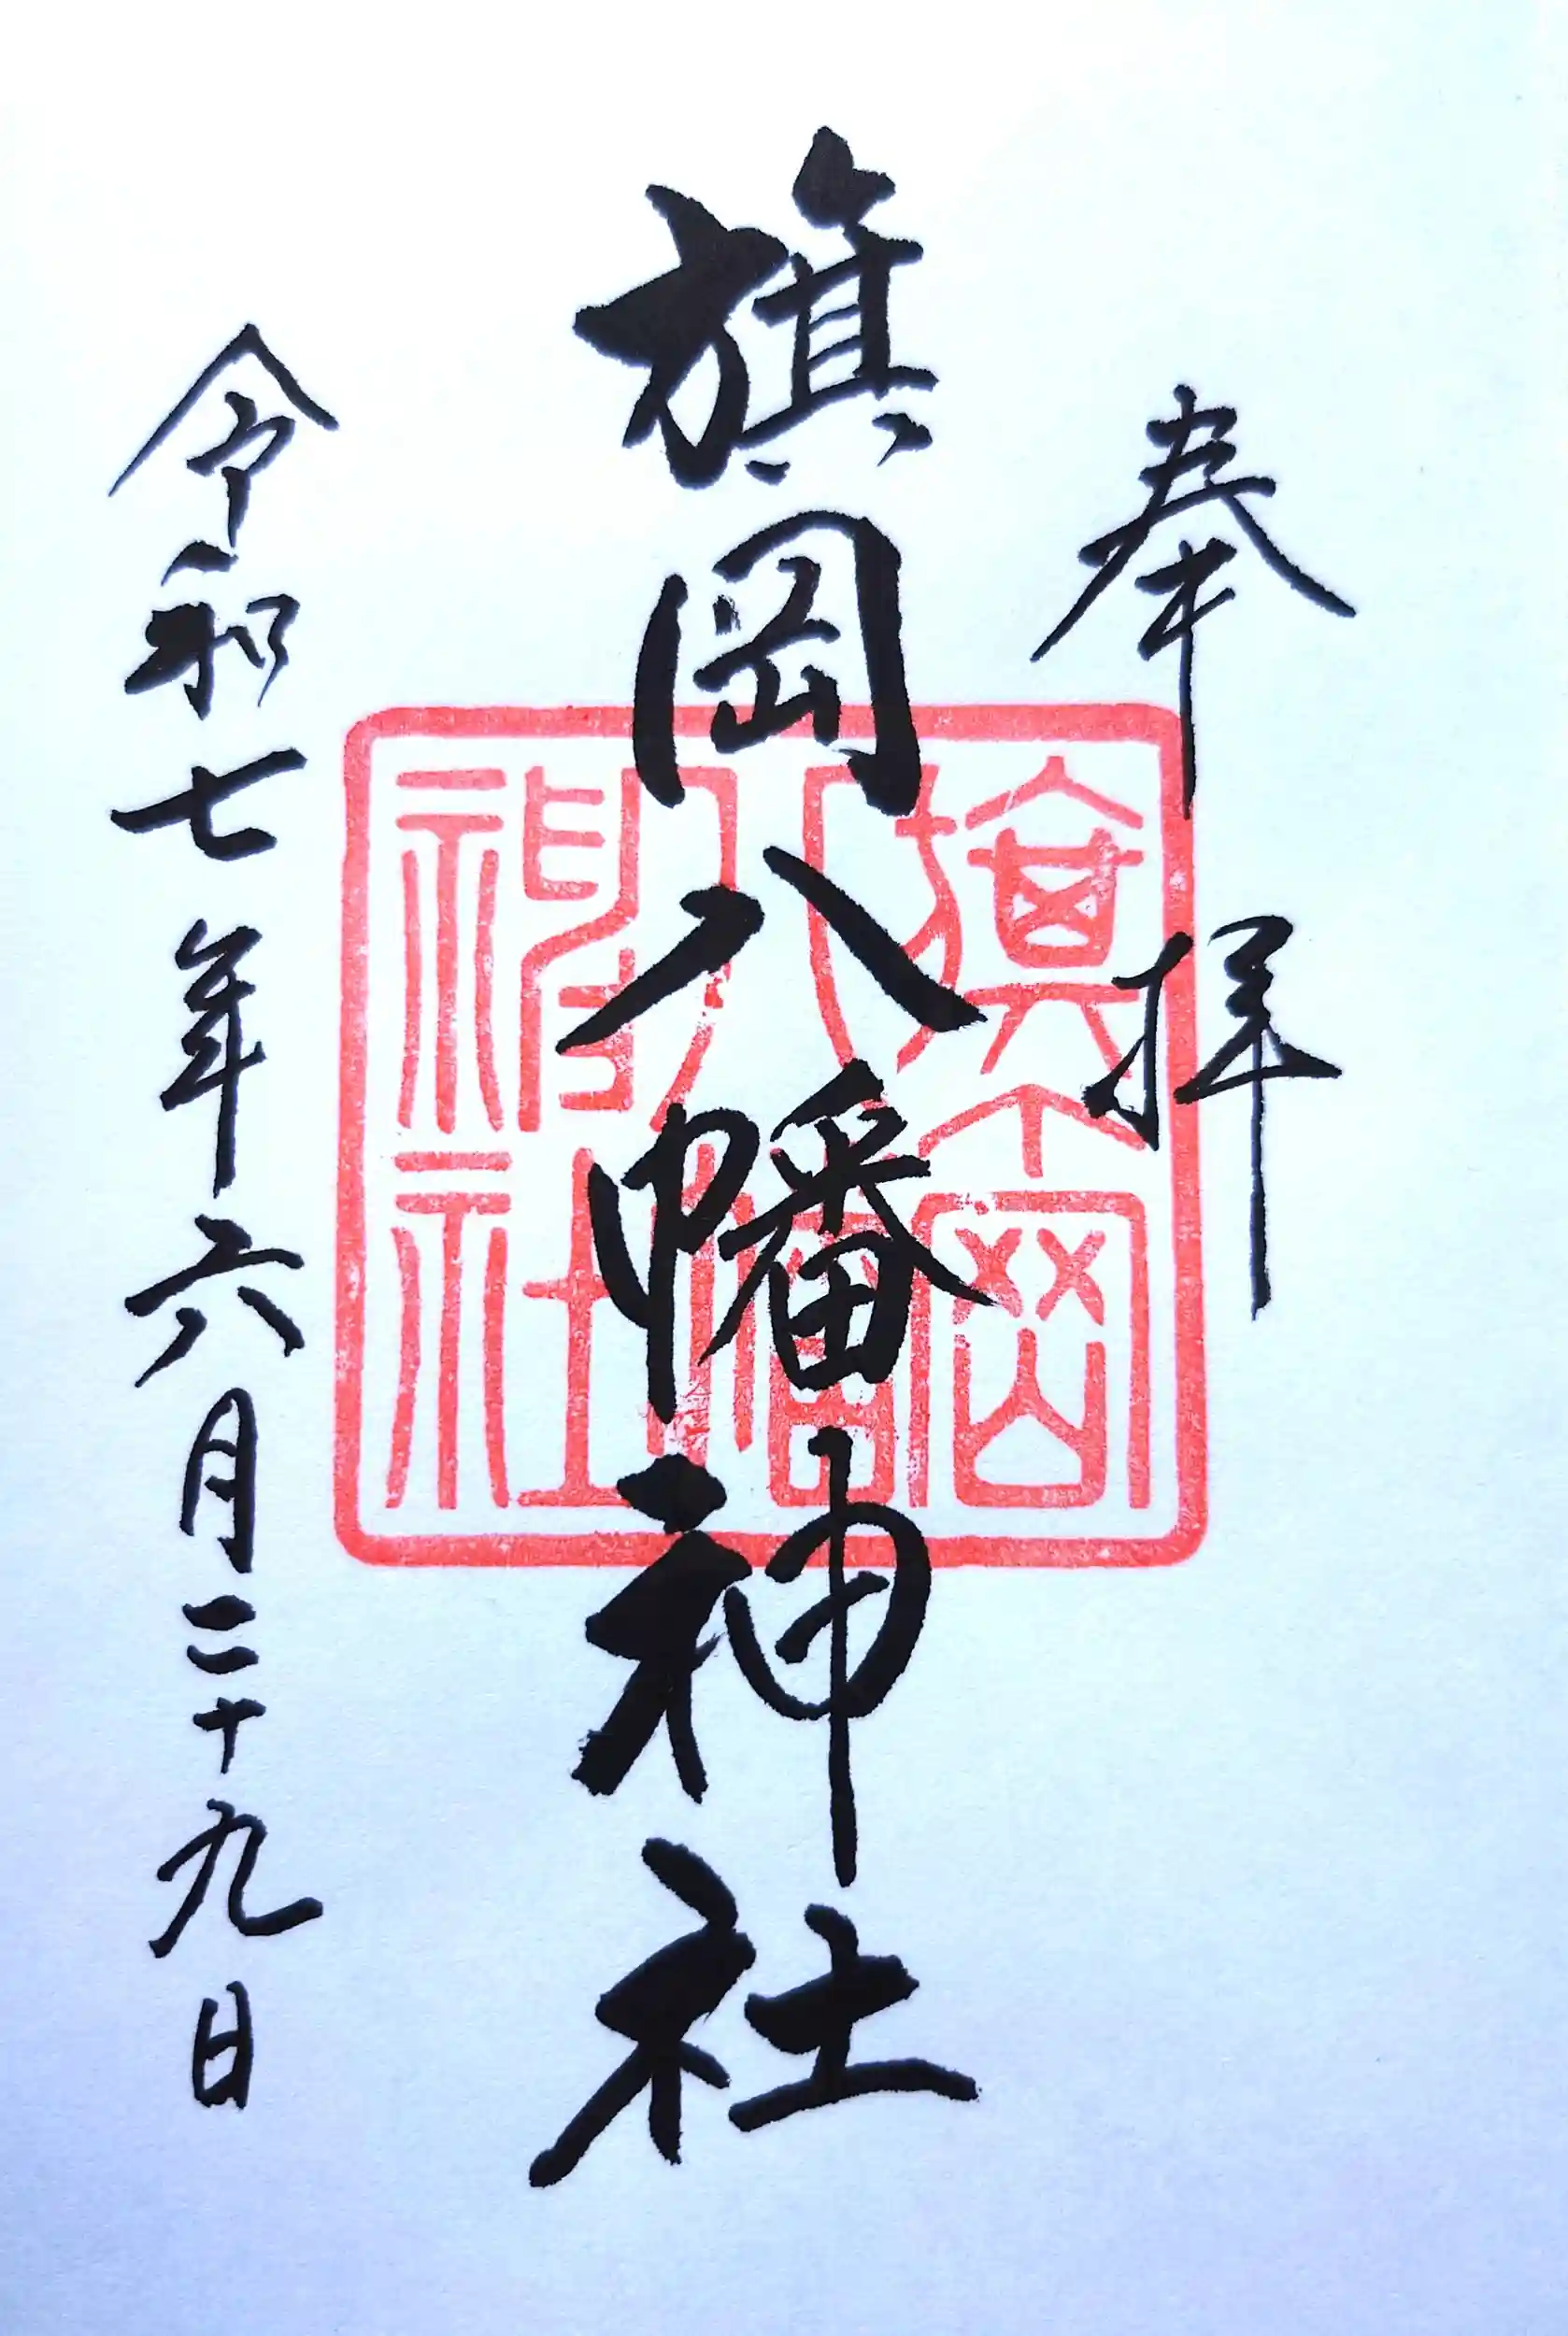 奉拝
旗岡八幡神社
旗岡
八幡
神社
令和七年六月二十九日